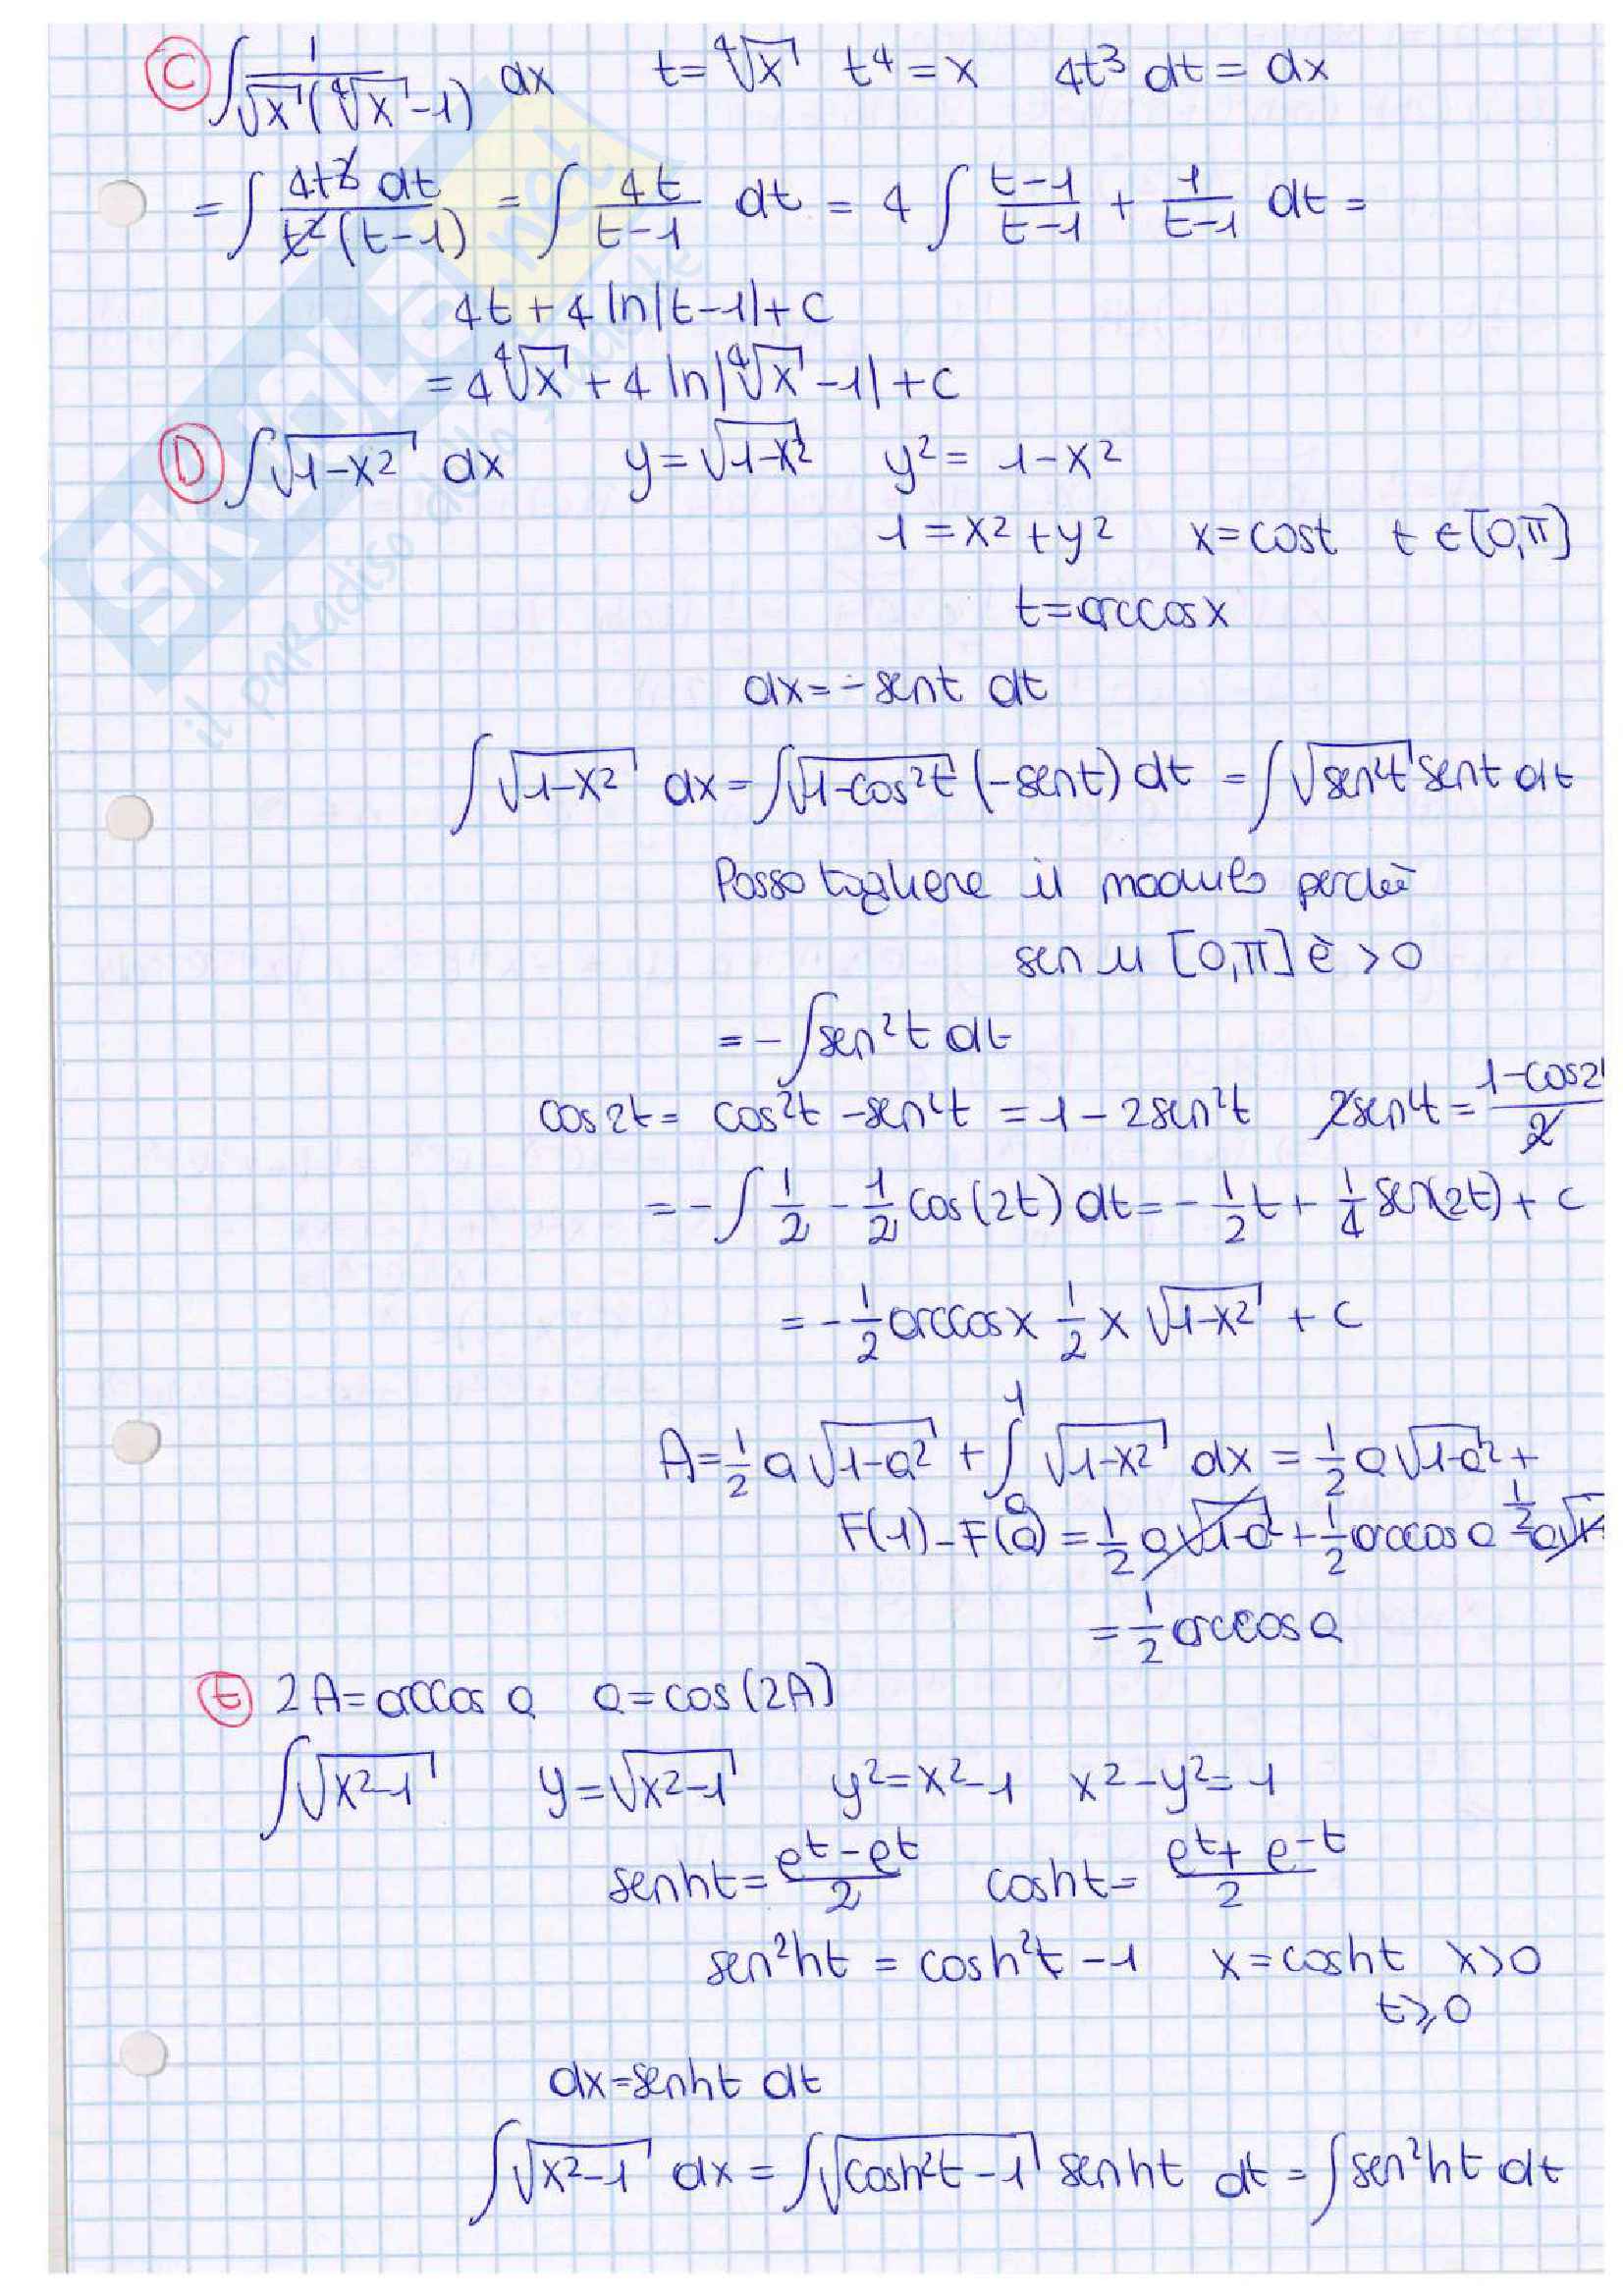 C ∫ 1/(√x (⁴√x - 1)) dx   t = ⁴√x   t⁴ = x   4t³ dt = dx
= ∫ 4t³ dt / (t² (t-1)) = ∫ 4t/(t-1) dt = 4 ∫ (t-1)/(t-1) + 1/(t-1) dt =
4t + 4 ln|t-1| + c
= 4 ⁴√x + 4 ln|⁴√x - 1| + c
D ∫ √(1-x²) dx   y = √(1-x²)   y² = 1-x²
1 = x² + y²   x = cost   t ∈ [0,π]
t = arccosx
dx = -sent dt
∫ √(1-x²) dx = ∫ √(1-cos²t) (-sent) dt = ∫ √(sen²t) sent dt
Posso togliere il modulo perchè
sen in [0,π] è > 0
= - ∫ sen²t dt
cos2t = cos²t - sen²t = 1 - 2sen²t   2sen²t = (1-cos2t)/2
= - ∫ 1/2 - 1/2 cos(2t) dt = - 1/2 t + 1/4 sen(2t) + c
= - 1/2 arccosx 1/2 x √(1-x²) + c
A = 1/2 a √(1-a²) + ∫ₐ¹ √(1-x²) dx = 1/2 a √(1-a²) +
F(1) - F(a) = 1/2 a √(1-a²) + 1/2 arccos a - 1/2 a √
= 1/2 arccos a
E 2A = arccos a   a = cos(2A)
∫ √(x²-1)   y = √(x²-1)   y² = x²-1   x²-y² = 1
senht = (e^t - e^t)/2   cosht = (e^t + e^-t)/2
sen²ht = cosh²t - 1   x = cosht   x>0
t ≥ 0
dx = senht dt
∫ √(x²-1) dx = ∫ √(cosh²t - 1) senht dt = ∫ sen²ht dt
SKUOLA.net
il paradiso dello studente